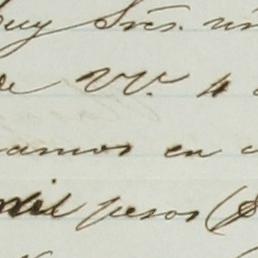 uy Sres. m
de VV. 4
amos en
mil pesos ($